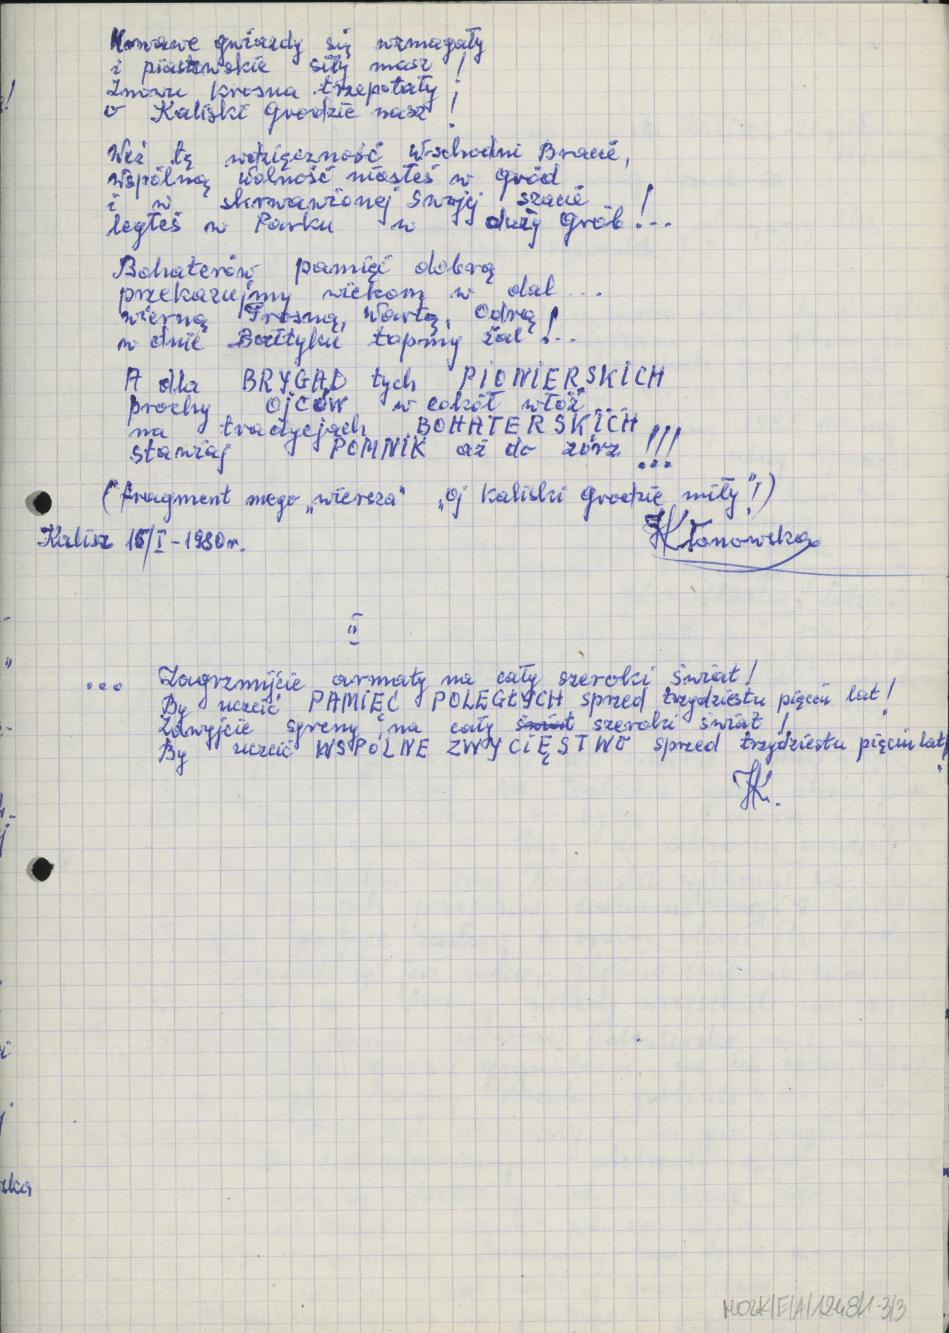 Krwawe gwiazdy się wzmagały
i piastowskie siły masz!
Znowu krosna trzepotały
o Kaliski Grodzie nasz!
Weź tę wdzięczność Wschodni Bracie,
wspólną wolność niosłeś w gród
i w skrwawionej Swojej szacie
ległeś w Parku w duży Grób!...
Bohaterów pamięć dobrą
przekazujmy wiekom w dal...
wierną Prosną, Wartą, Odrą
w dnie Bałtyku topmy żal!...
A dla BRYGAD tych PIONIERSKICH
prochy OJCÓW w cokół włóż
na tradycjach BOHATERSKICH
stawiaj POMNIK aż do zórz!!!
(fragment mego „wiersza" „Oj Kaliski Grodzie miły"!)
Kalisz 15/I-1980r.
HKłonowska
II
... Zagrzmijcie armaty na cały szeroki świat!
By uczcić PAMIĘĆ POLEGŁYCH sprzed trzydziestu pięciu lat!
Zawyjcie syreny na cały świat szeroki świat!
By uczcić WSPÓLNE ZWYCIĘSTWO sprzed trzydziestu pięciu lat
HK.